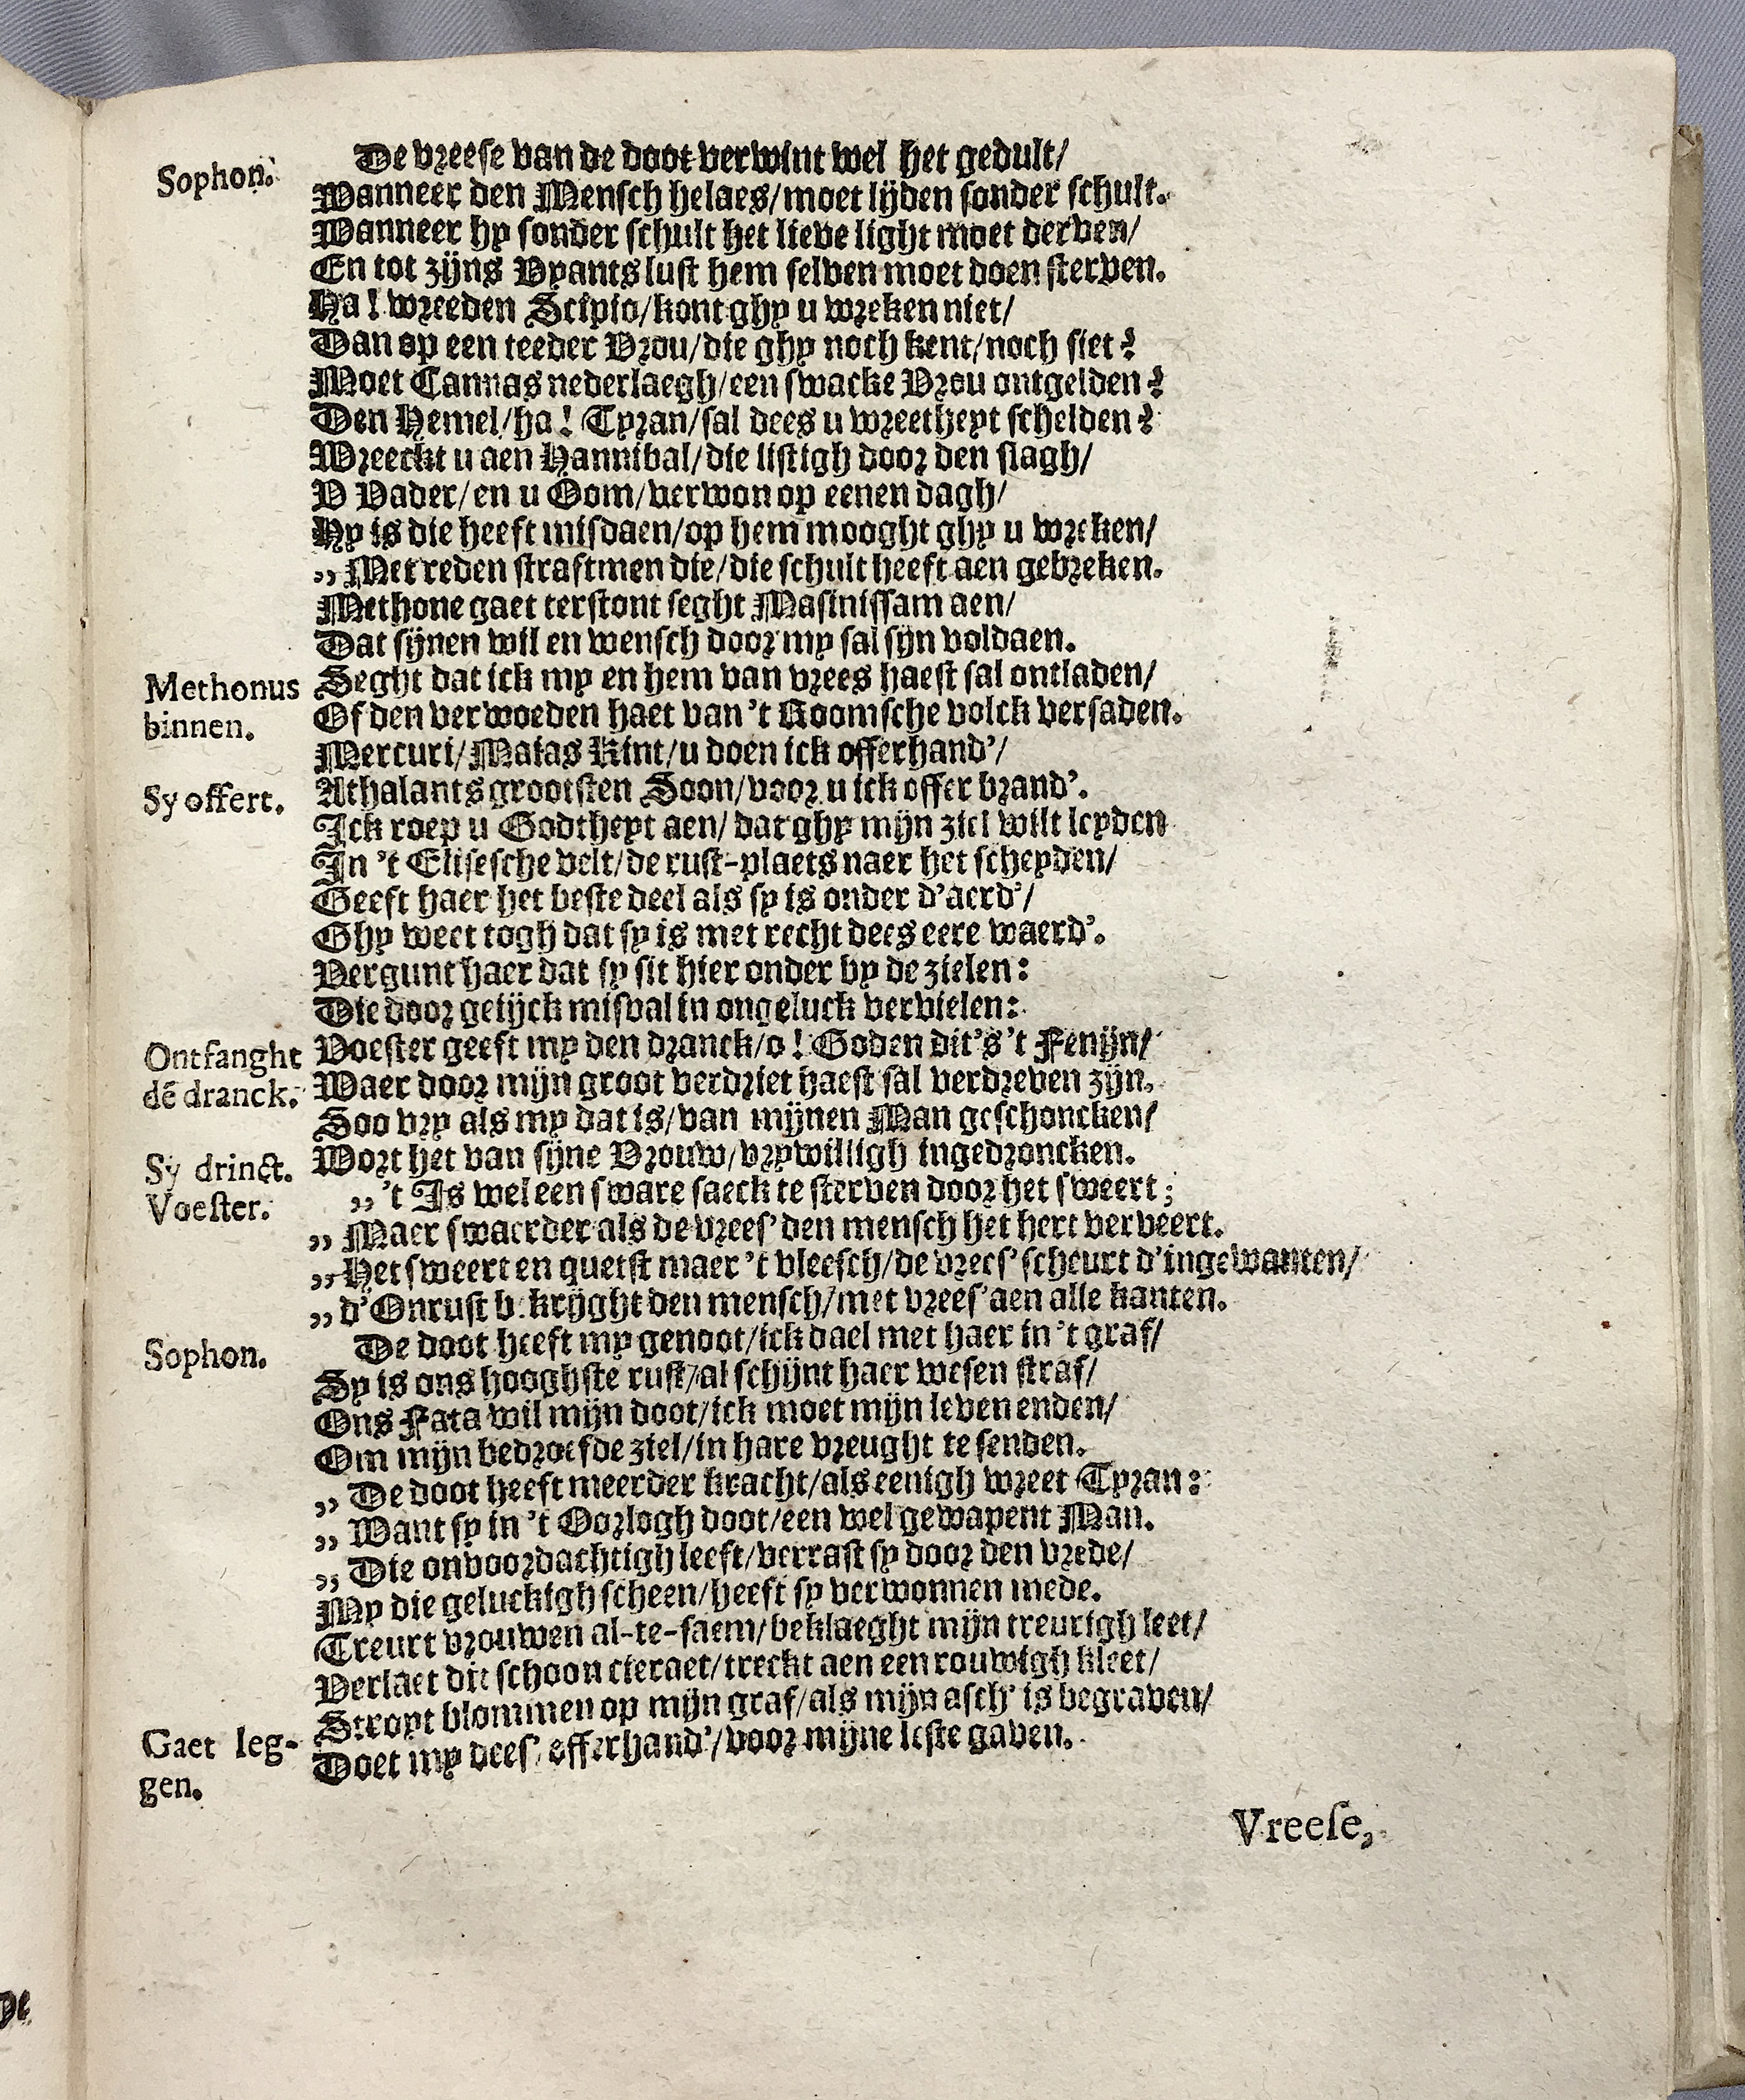 Sophon. De vreese van de doot verwint wel het gedult/
Wanneer den Mensch helaes/moet lijden sonder schult.
Wanneer hy sonder schult het lieve light moet derven/
En tot zijns Vyants lust hem selven moet doen sterven.
Ha! wreeden Scipio/kont ghy u wreken niet/
Dan op een teeder Vrou/die ghy noch kent/noch siet?
Moet Cannas nederlaegh/een swacke Vrou ontgelden?
Den Hemel/ha! Tyran/sal dees u wreetheyt schelden?
Wreeckt u aen Hannibal/die listigh door den slagh/
U Vader/en u Oom/verwon op eenen dagh/
Hy is die heeft misdaen/op hem mooght ghy u wreken/
„ Met reden straftmen die/die schult heeft aen gebreken.
Methone gaet terstont seght Masinissam aen/
Dat sijnen wil en wensch door my sal sijn voldaen.
Methonus Seght dat ick my en hem van vrees haest sal ontladen/
binnen. Of den verwoeden haet van 't Roomsche volck versaden.
Mercuri/Maias Kint/u doen ick offerhand'/
Sy offert. Athalants grootsten Soon/voor u ick offer brand'.
Ick roep u Godtheyt aen/dat ghy mijn ziel wilt leyden
In 't Elisesche velt/de rust-plaets naer het scheyden/
Geeft haer het beste deel als sy is onder d'aerd'/
Ghy weet togh dat sy is met recht dees eere waerd'.
Vergunt haer dat sy sit hier onder by de zielen:
Die door gelijck misval in ongeluck vervielen:
Ontfanght Voester geeft my den dranck/o! Goden dit's 't Fenijn/
dē dranck. Waer door mijn groot verdriet haest sal verdreven zijn.
Soo vry als my dat is/van mijnen Man geschoncken/
Sy drinct. Wort het van sijne Vrouw/vrywilligh ingedroncken.
Voester. „ 't Is wel een sware saeck te sterven door het sweert;
„ Maer swaerder als de vrees' den mensch het hert verveert.
„ Het sweert en quetst maer 't vleesch/de vrees' scheurt d'ingewanten/
„ d'Onrust b:krijght den mensch/met vrees' aen alle kanten.
Sophon. De doot heeft my genoot/ick dael met haer in 't graf/
Sy is ons hooghste rust/al schijnt haer wesen straf/
Ons Fata wil mijn doot/ick moet mijn leven enden/
Om mijn bedroefde ziel/in hare vreught te senden.
„ De doot heeft meerder kracht/als eenigh wreet Tyran:
„ Want sy in 't Oorlogh doot/een wel gewapent Man.
„ Die onvoordachtigh leeft/verrast sy door den vrede/
My die geluckigh scheen/heeft sy verwonnen mede.
Treurt vrouwen al-te-saem/beklaeght mijn treurigh leet/
Verlaet dit schoon cieraet/treckt aen een rouwigh kleet/
Stroyt blommen op mijn graf/als mijn asch' is begraven/
Gaet leg- Doet my dees' offerhand'/voor mijne leste gaven.
gen.
Vreese,
De